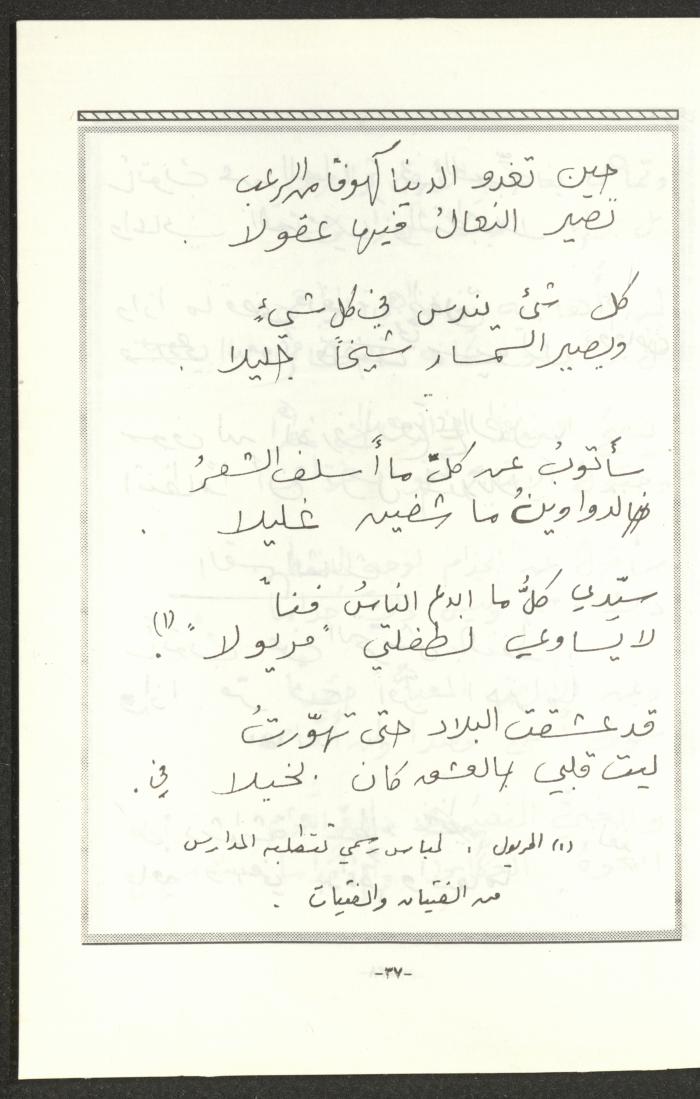 حين تغدو الدينا كهوفا من الرعب
تصير النعالُ فيها عقولا .
كل شئ يندس في كل شيءٍ
ويصير السمسار شيخاً جليلا .
سأتوبُ عن كلّ ما أسلف الشعرُ
فالدواوينُ ما شفين غليلا .
سيّدي كلُّ ما ابدع الناسُ فناً
لا يساوي لطفلتي "مريولا" (١).
قد عشقت البلاد حتى تهوّرتُ
ليت قلبي بالعشق كان بخيلا في .
(١) المريول : لباس رسمي تتطلبه المدارس
من الفتيان والفتيات .
-٣٧-